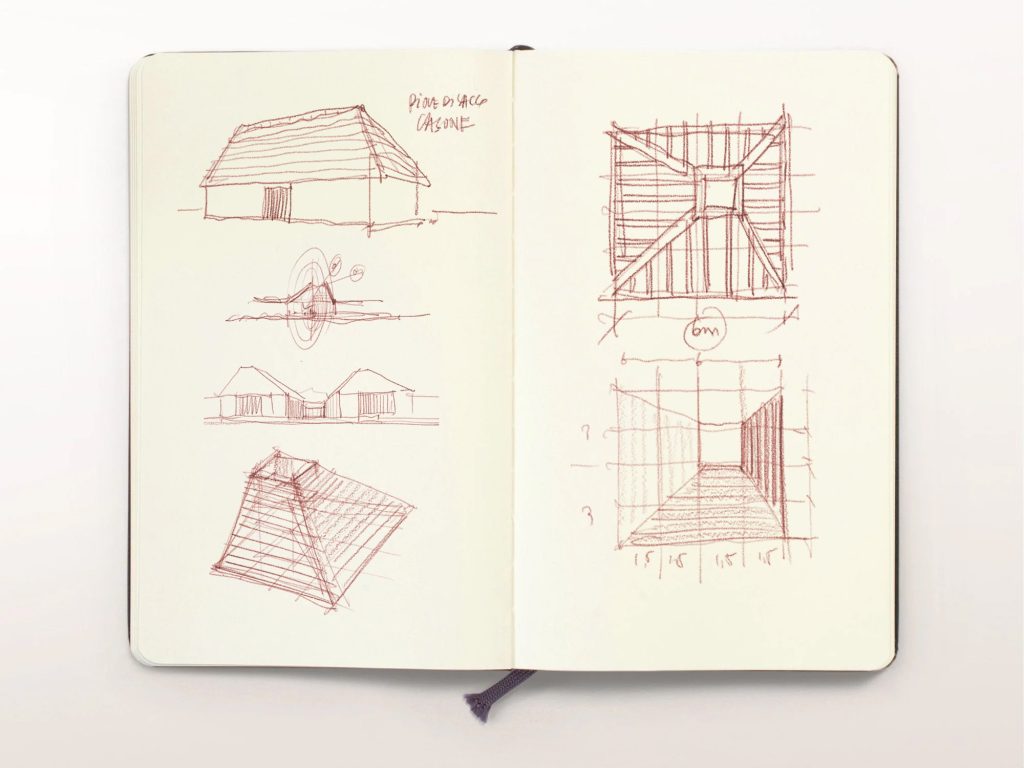 PIOVE DI SACCO
CASONE
6m
6 6
3
3
1,5 1,5 1,5 1,5